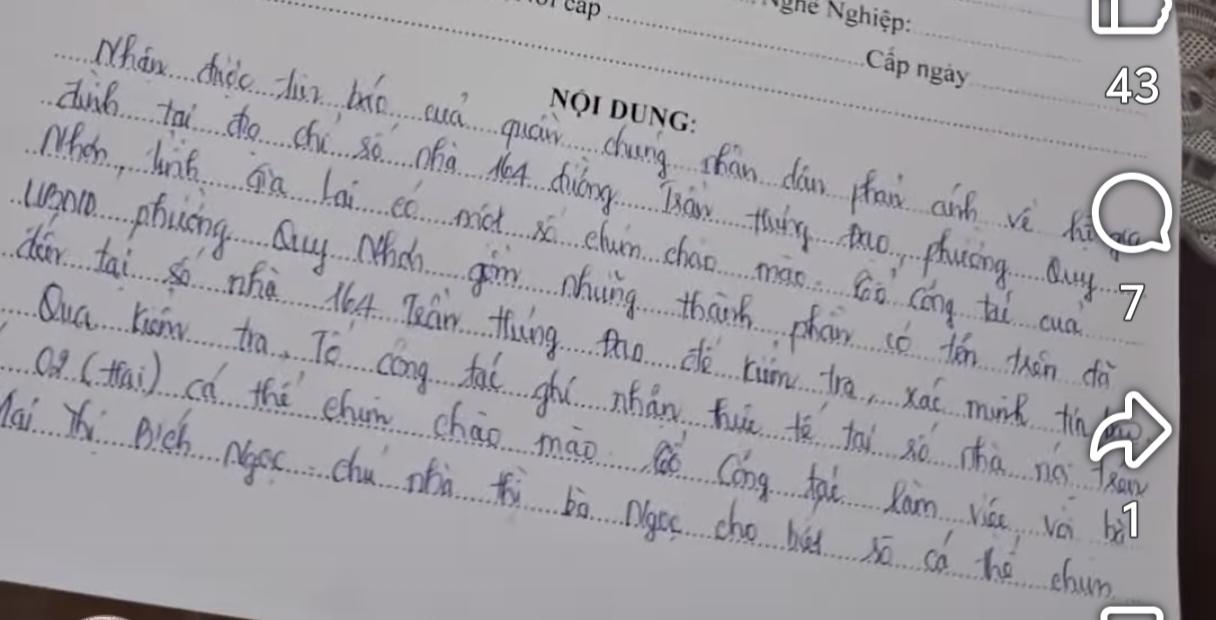 cấp
Nghề Nghiệp:
Cấp ngày
NỘI DUNG:
Nhận được tin báo của quần chúng nhân dân phản ánh về hộ gia
đình tại địa chỉ số nhà 164 đường Trần Hưng Đạo, phường Quy
Nhơn, tỉnh Gia Lai có một số chim chào mào. Tổ công tác của
UBND phường Quy Nhơn gồm những thành phần có tên trên đã
đến tại số nhà 164 Trần Hưng Đạo để kiểm tra, xác minh tin
Qua kiểm tra, Tổ công tác ghi nhận thực tế tại số nhà nói trên
02 (Hai) cá thể chim chào mào. Tổ công tác làm việc với bà
Mai Thị Bích Ngọc - chủ nhà thì bà Ngọc cho biết số cá thể chim
43
7
1